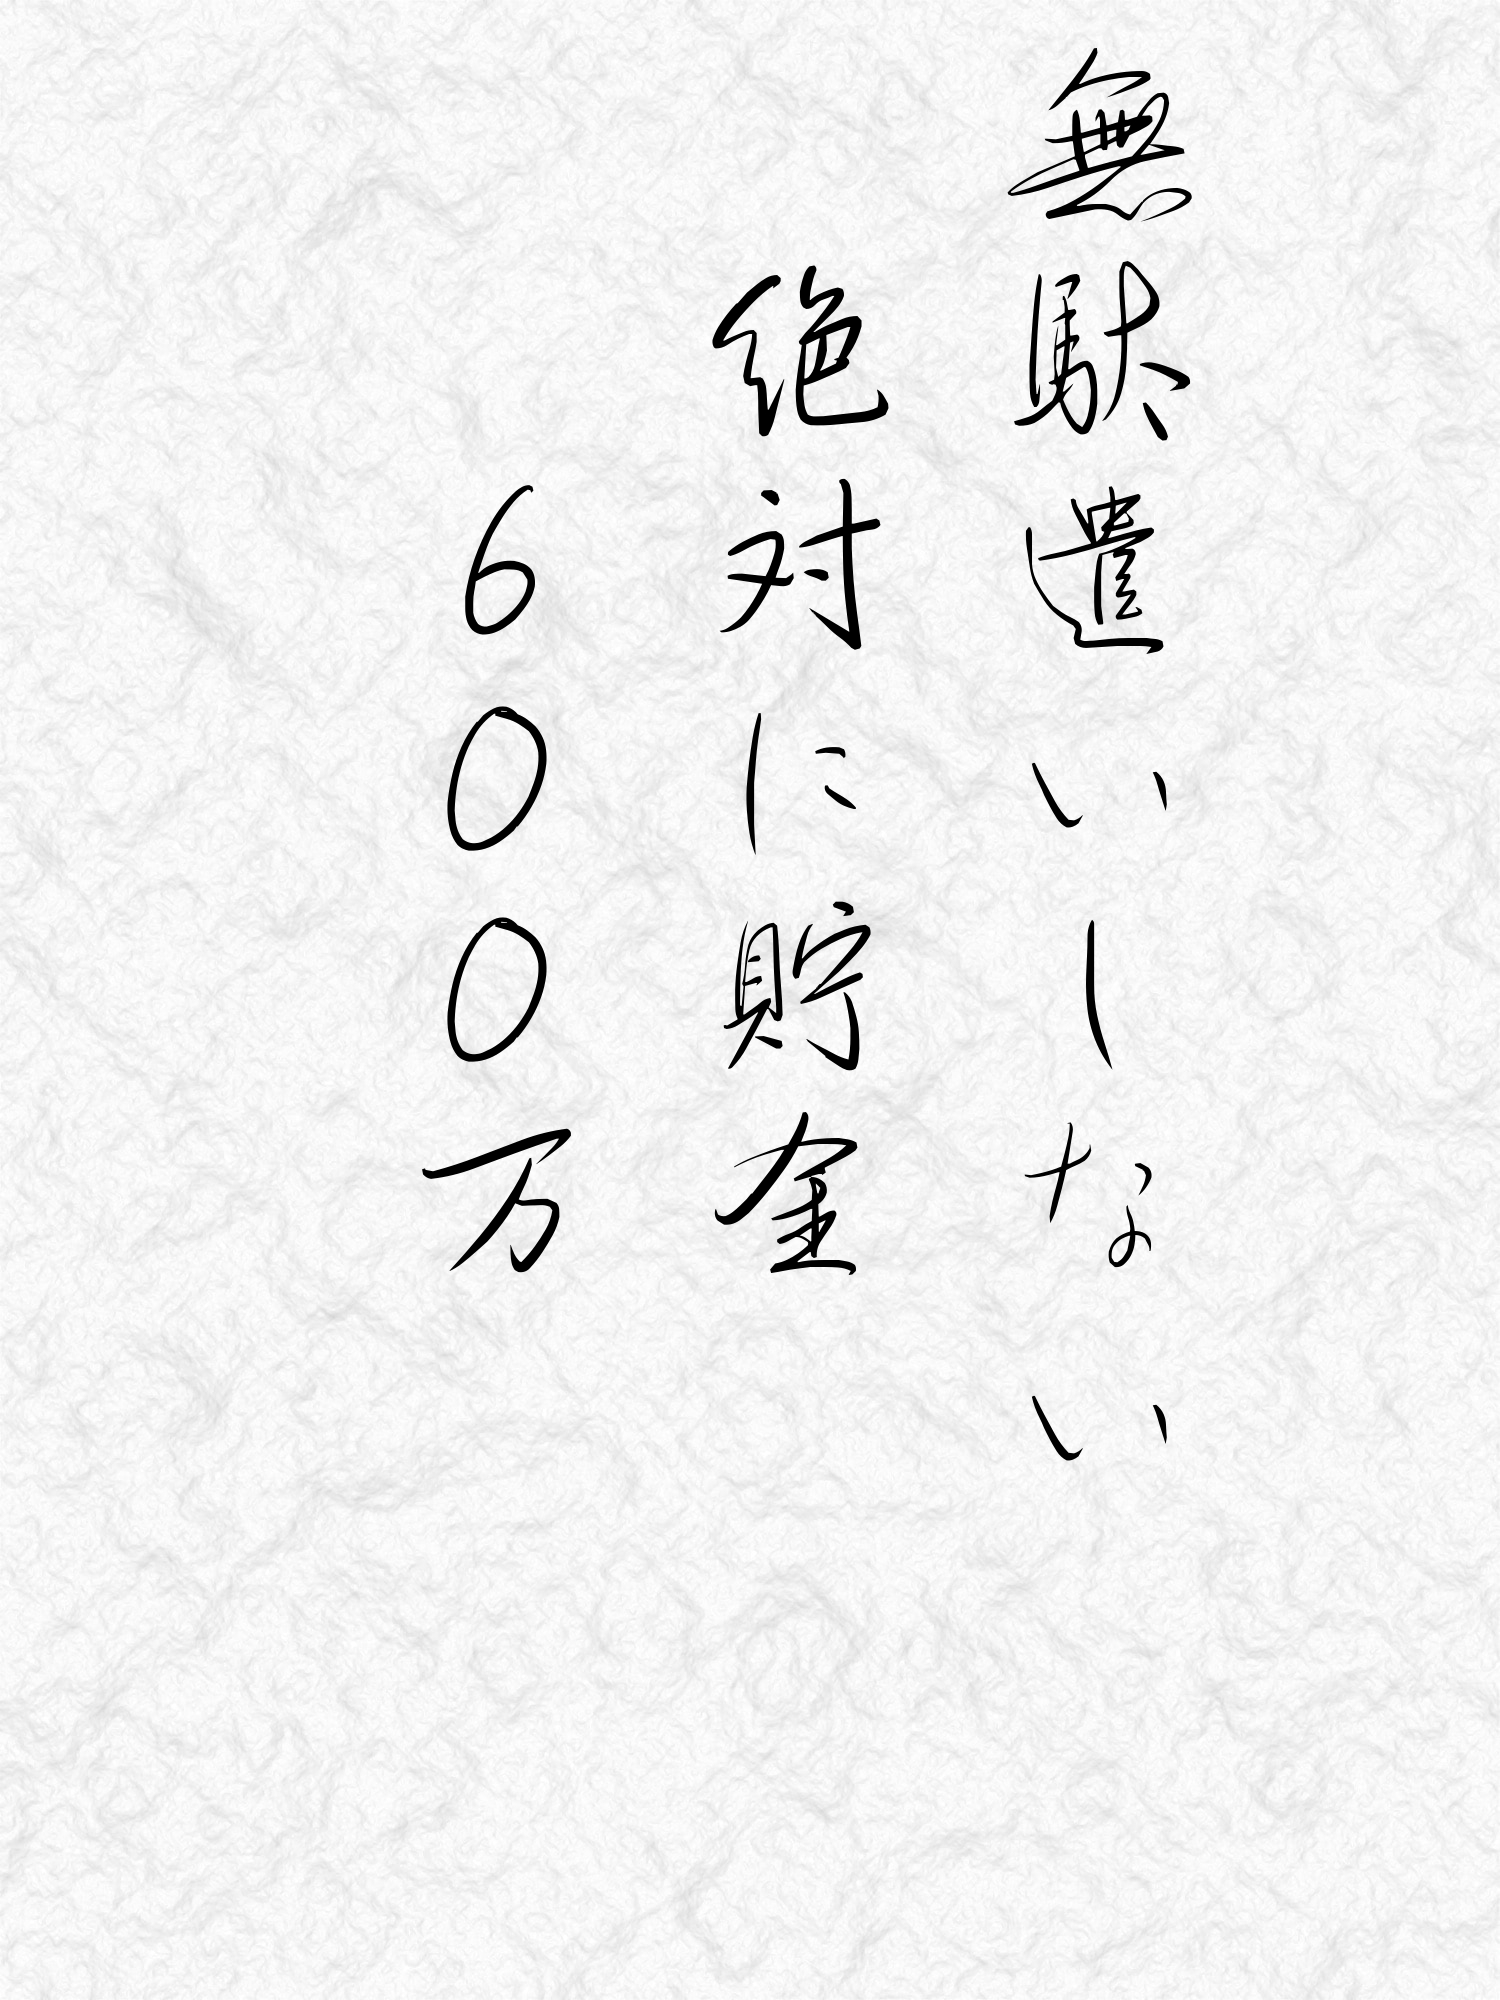 無駄遣いしない
絶対に貯金
600万